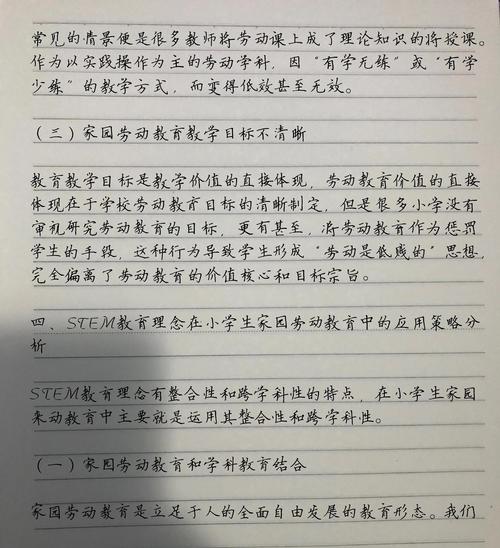 常见的情景便是很多教师将劳动课上成了理论知识的将授课。
作为以实践操作为主的劳动学科，因“有学无练”或“有学
少练”的教学方式，而变得低效甚至无效。
（三）家园劳动教育教学目标不清晰
教育教学目标是教学价值的直接体现，劳动教育价值的直接
体现在于学校劳动教育目标的清晰制定，但是很多小学没有
审视研究劳动教育的目标，更有甚至，将劳动教育作为惩罚
学生的手段，这种行为导致学生形成“劳动是低贱的”思想，
完全偏离了劳动教育的价值核心和目标宗旨。
四、STEM教育理念在小学生家园劳动教育中的应用策略分
析
STEM教育理念有整合性和跨学科性的特点，在小学生家园
来动教育中主要就是运用其整合性和跨学科性。
（一）家园劳动教育和学科教育结合
家园劳动教育是立足于人的全面自由发展的教育形态。我们